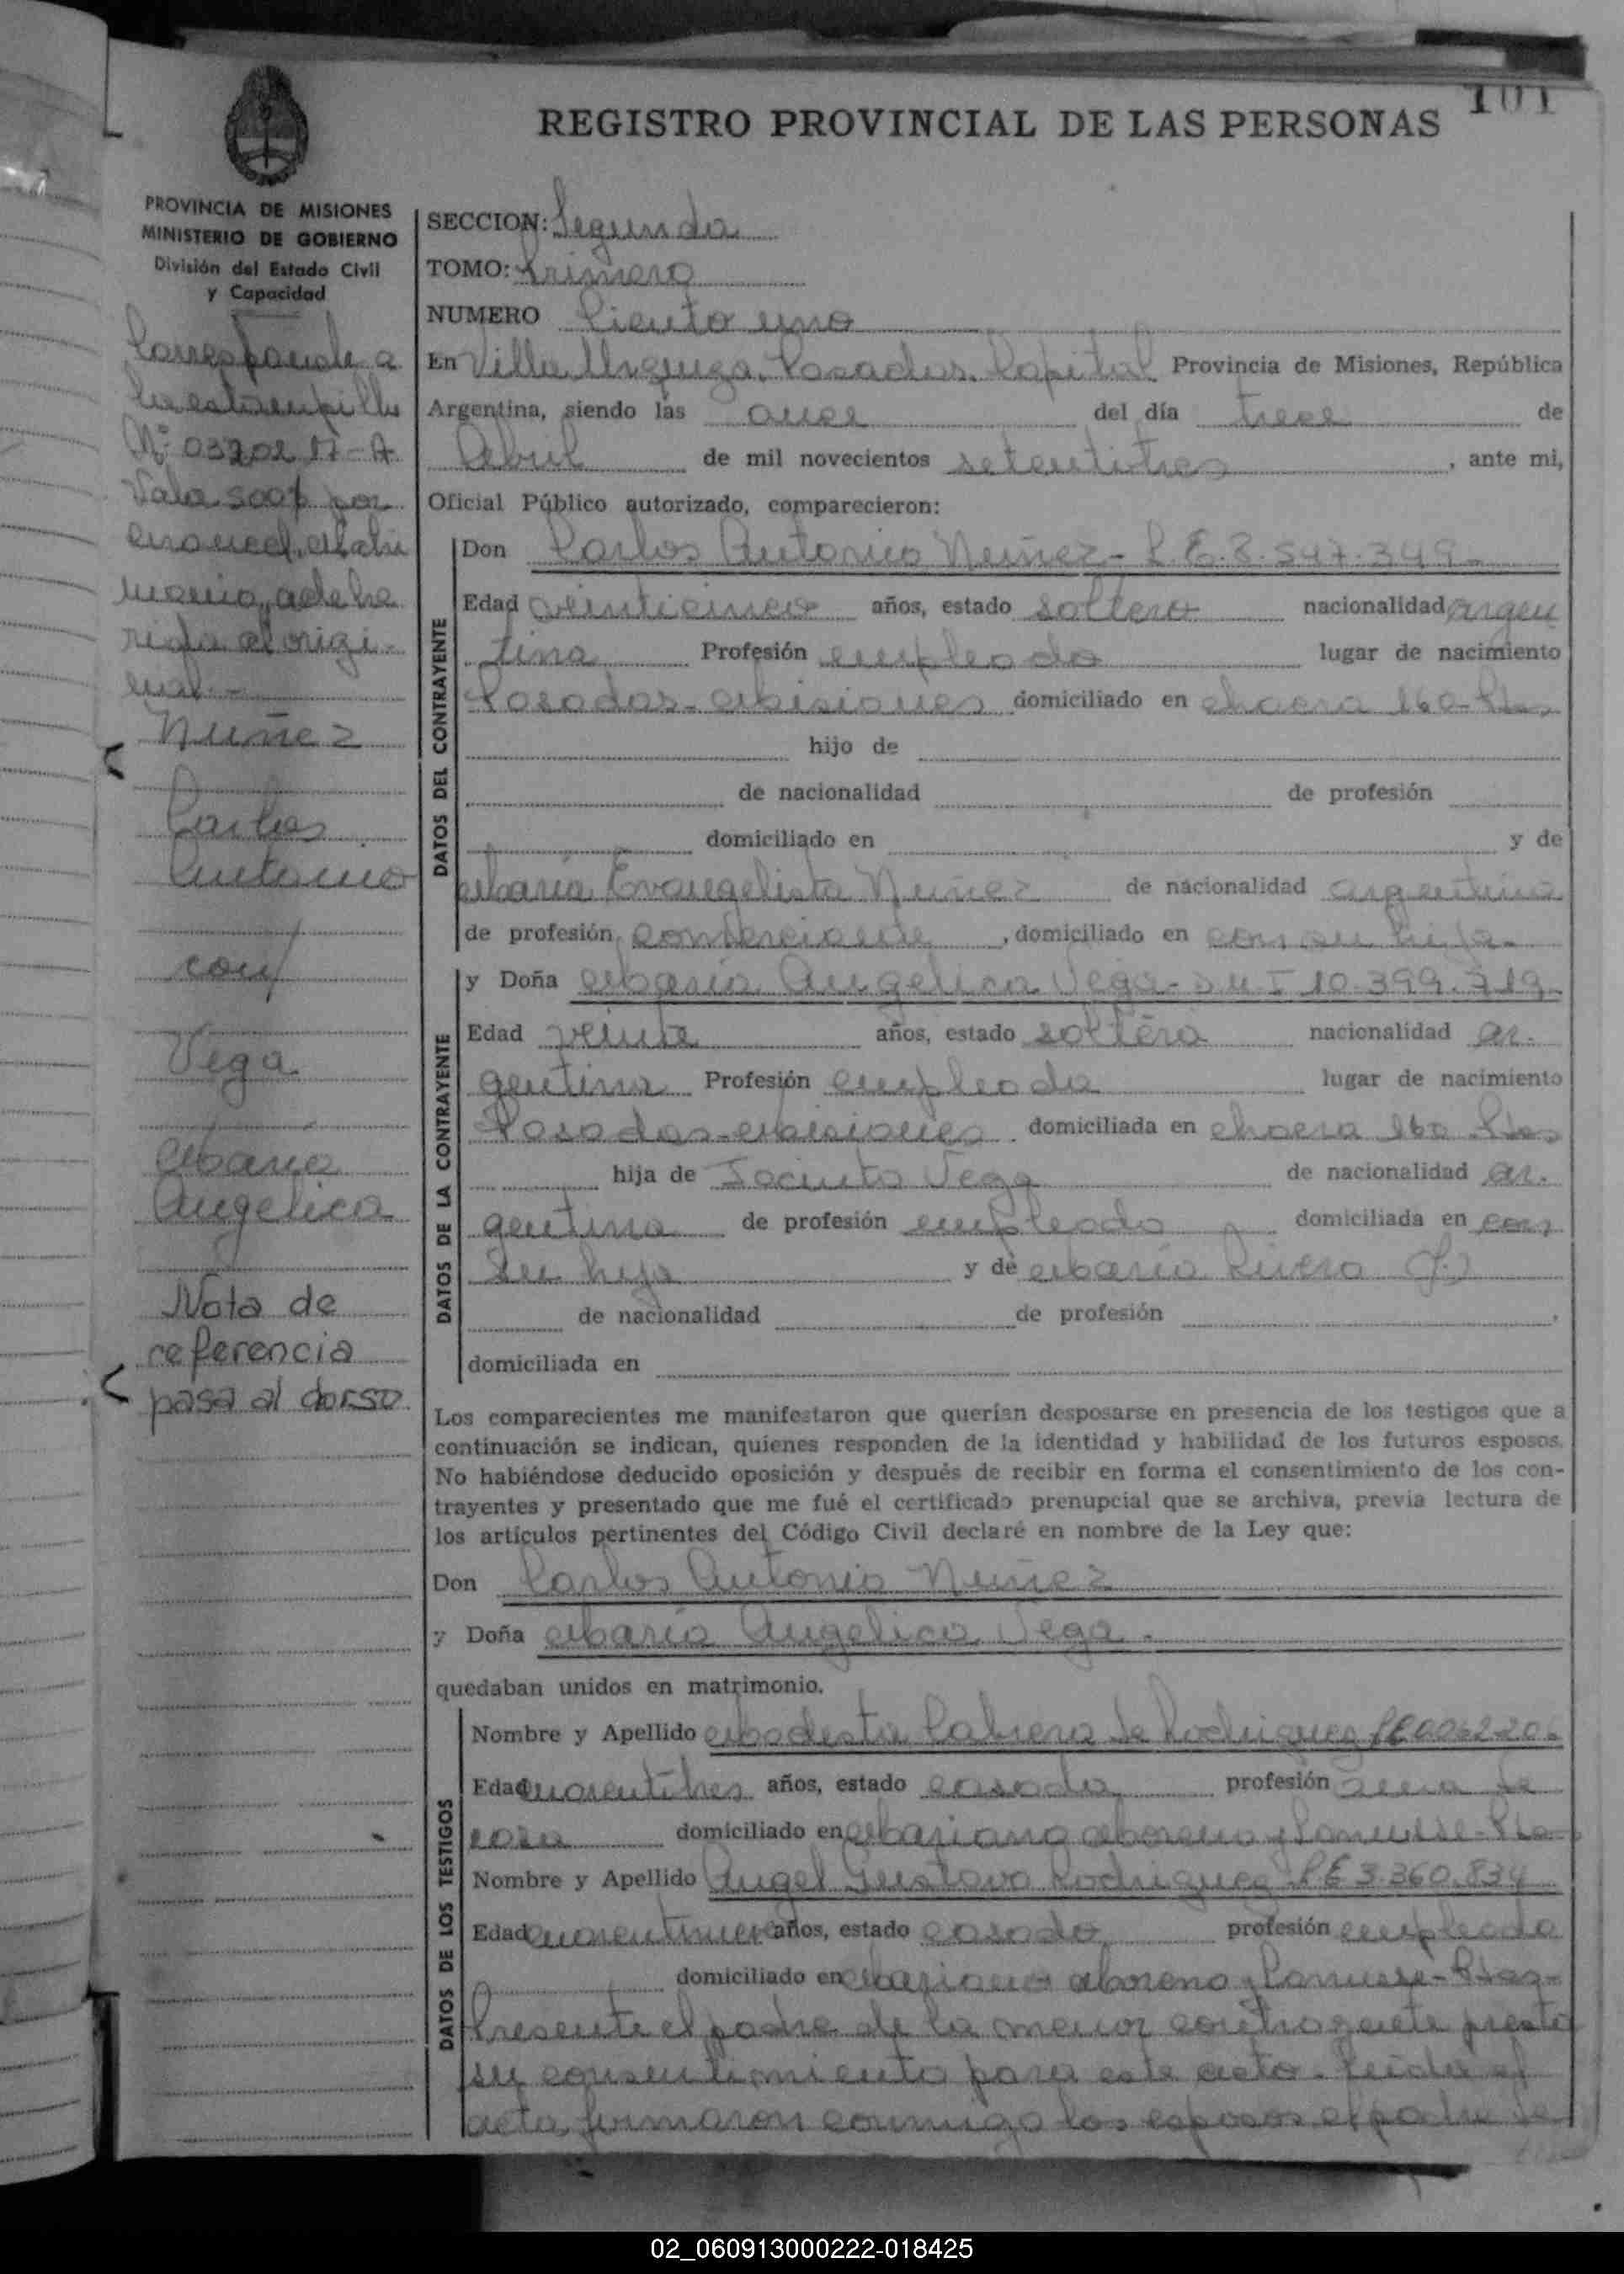 101
REGISTRO PROVINCIAL DE LAS PERSONAS
PROVINCIA DE MISIONES
MINISTERIO DE GOBIERNO
División del Estado Civil
y Capacidad
Corresponde a
la estampilla
Nº 0390217-A
Vala 500$ por
enamed. Matri
monio, adehe
rida al origi-
nal.-
Nuñez
Carlos
Antonio
con/
Vega
María
Angelica
Nota de
referencia
pasa al dorso
SECCION: Segunda
TOMO: Primero
NUMERO Ciento uno
En Villa Urquiza, Posadas, Capital Provincia de Misiones, República
Argentina, siendo las once del día trece de
Abril de mil novecientos setentitres, ante mi,
Oficial Público autorizado, comparecieron:
DATOS DEL CONTRAYENTE
Don Carlos Antonio Nuñez - L.E. 8.547.349-
Edad veinticinco años, estado soltero nacionalidad argen
tina Profesión empleado lugar de nacimiento
Posadas-Misiones domiciliado en chacra 160-Pdas
hijo de
de nacionalidad de profesión
domiciliado en y de
María Evangelista Nuñez de nacionalidad argentina
de profesión comerciante, domiciliado en con su hijo-
DATOS DE LA CONTRAYENTE
y Doña María Angelica Vega- D.N.I 10.399.719-
Edad veinte años, estado soltera nacionalidad ar.
gentina Profesión empleada lugar de nacimiento
Posadas-Misiones domiciliada en chacra 160 Pdas
hija de Jacinto Vega de nacionalidad ar.
gentina de profesión empleado domiciliada en con
su hija y de María Rivero (f.)
de nacionalidad de profesión
domiciliada en
Los comparecientes me manifestaron que querían desposarse en presencia de los testigos que a
continuación se indican, quienes responden de la identidad y habilidad de los futuros esposos.
No habiéndose deducido oposición y después de recibir en forma el consentimiento de los con-
trayentes y presentado que me fué el certificado prenupcial que se archiva, previa lectura de
los artículos pertinentes del Código Civil declaré en nombre de la Ley que:
Don Carlos Antonio Nuñez
y Doña María Angelica Vega.
quedaban unidos en matrimonio.
DATOS DE LOS TESTIGOS
Nombre y Apellido Modesta Cabrera de Rodriguez
Edad cuarentitres años, estado casada profesión ama de
casa domiciliado en Mariano Moreno y Lanusse-Pdas
Nombre y Apellido Angel Gustavo Rodriguez L E 3.360.834
Edad cuarentinueve años, estado casado profesión empleado
domiciliado en Mariano Moreno y Lanusse-Pdas-
Presente el padre de la menor contrayente presta
su consentimiento para este acto. Leida el
acta, firmaron conmigo los esposos el padre de
02_060913000222-018425